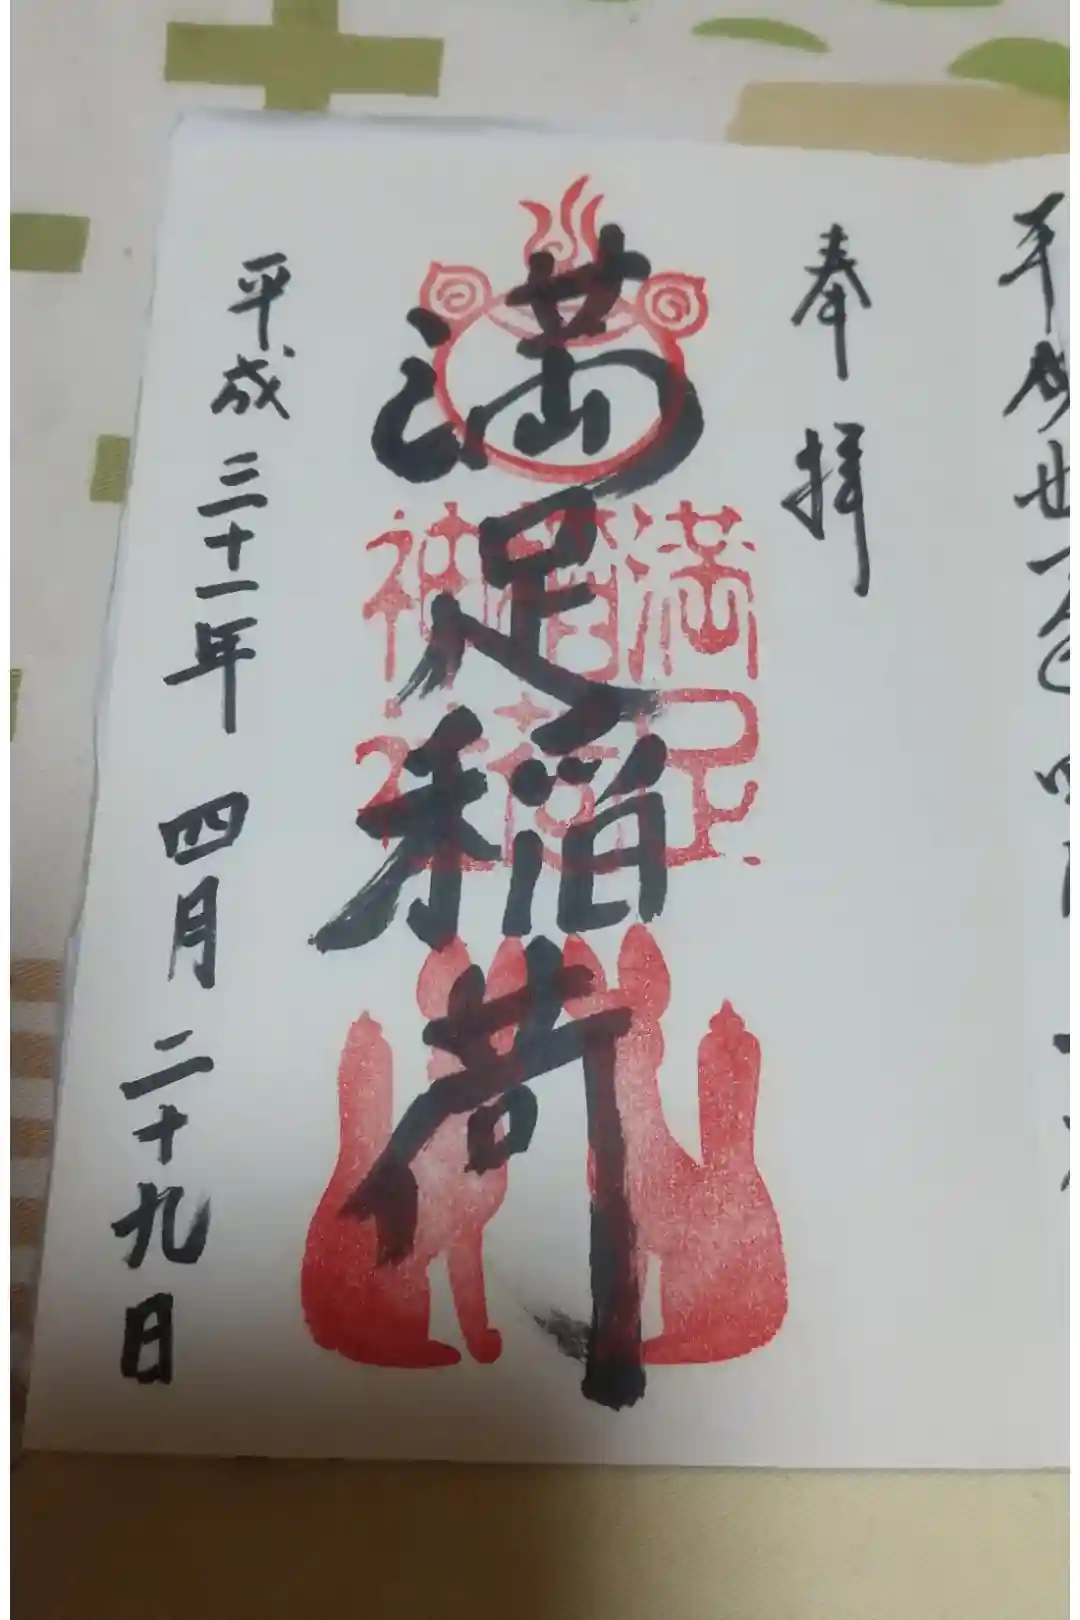 奉拝
満足稲荷
満足稲荷神社
平成三十一年四月二十九日